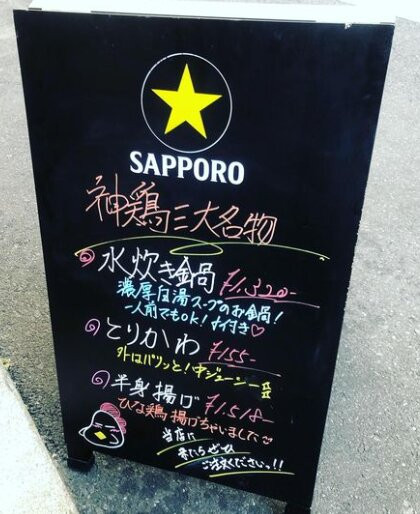 SAPPORO
神鶏三大名物
水炊き鍋 ¥1.320-
濃厚白湯スープのお鍋!
一人前でもOK!〆付き♡
とりかわ ¥155-
外はパリッと!中ジューシー
半身揚げ ¥1.518-
ひな鶏揚げちゃいました
当店に
来たらぜひ
ご注文ください!!